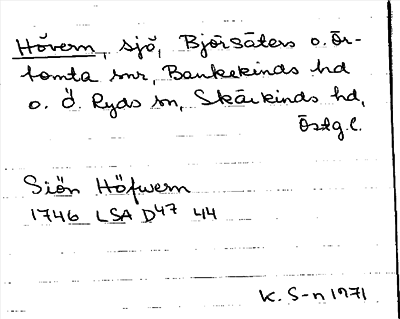 Hövern, sjö, Björsäters o. Ör-
tomta snr, Bankekinds hd
o. Ö. Ryds sn, Skärkinds hd,
Östg.l.
Siön Höfwern
1746 LSA D47 44
K. S-n 1971